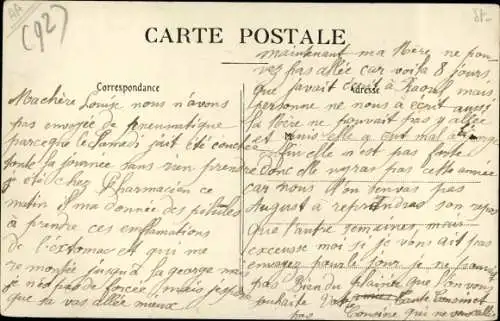 (92)
CARTE POSTALE
Correspondance
Adresse
Ma chère Louise nous n'avons
pas envoyée de pneumatique
parceque le Samedi jait été couchée
toute la journée sans rien prendre
j eté chez Pharmacien ce
matin il ma donnée des pilules
à prendre ces enflamations
de l'extomac et qui me
remontée jusqu'à la george mais
je n'ai pas de forcée mais j'espère
que ta vas allée mieux
maintenant ma Mère ne pou
vez pas allée car voila 8 jours
que javait écrit à Raoul mais
personne ne nous a ecrit aussi
la Mère ne pouvait pas y allée
et puis elle a eut mal
elle n'est pas forte
Donc elle n'yras pas cette année
car nous l'on tenvas pas
August à reprendras son repas
que l'autre semaines, mais
excusse moi si je vons ait pas
envoyez pour le jour je ne
pas Bien du plainée que l'on vous
souhaite
Cousine qui ne vous
pas